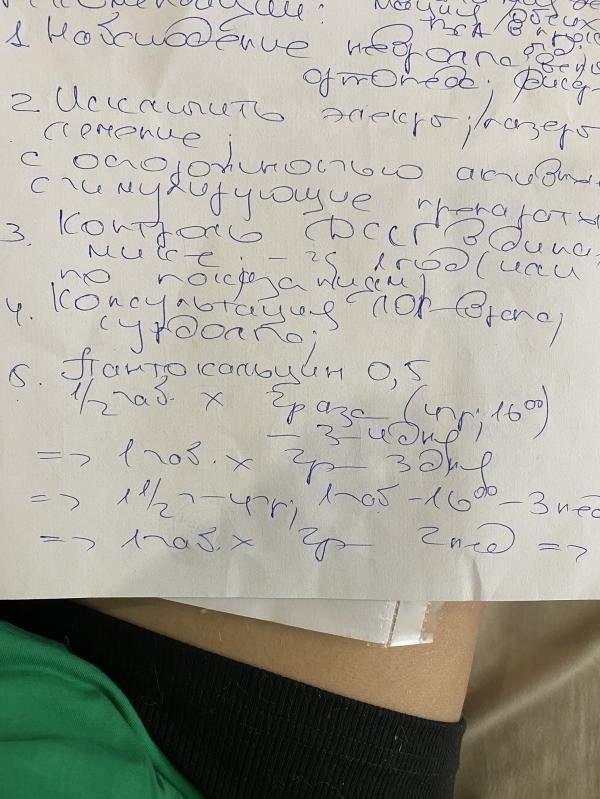 1. Наблюдение невролога,
ортопеда,
2. Исключить электро; лазеро
лечение;
с осторожностью активн
стимулирующие препараты
3. Контроль ДССГ в динa
мике: – 2г 1 год (или
по показаниям)
4. Консультация ЛОР-врача,
сурдолога;
5. Пантокальцин 0,5
1/2 таб. х 2 раза (утр; 16⁰⁰)
– 3 дня
=> 1 таб. х 2р – 3 дня
=> 1 1/2 т – утр; 1 таб – 16⁰⁰ – 3 нед
=> 1 таб. х 2р – 2 нед =>